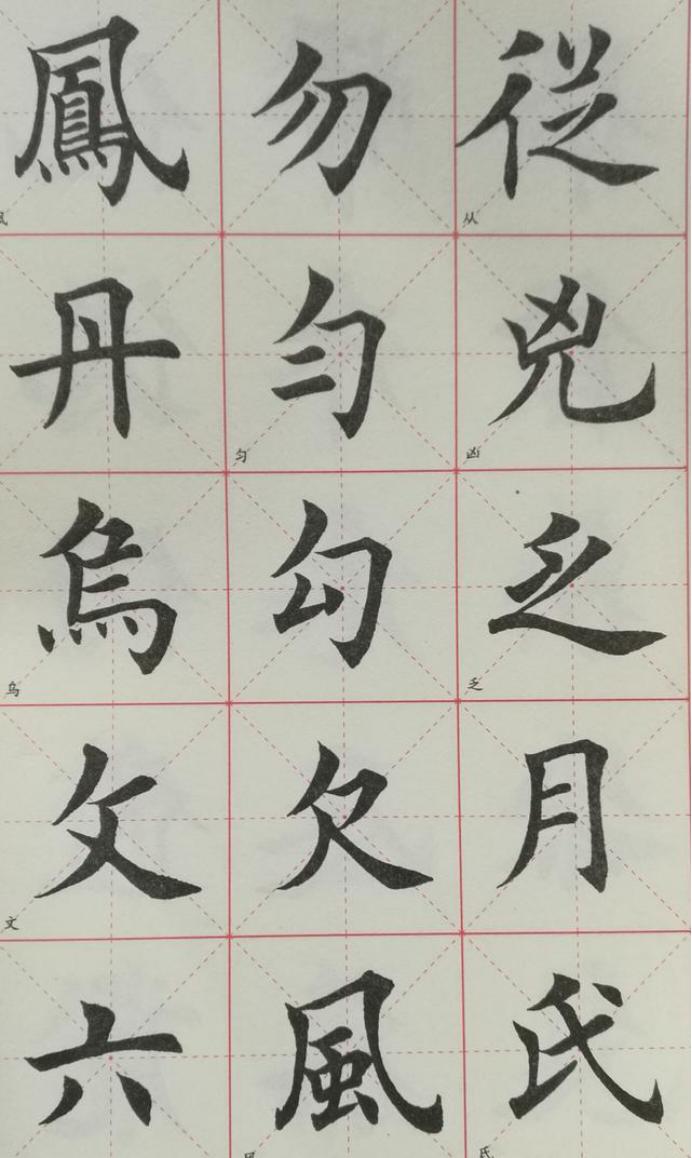 従
从
兇
凶
乏
乏
月
氏
氏
勿
匀
匀
勾
欠
風
鳳
丹
烏
乌
文
文
六